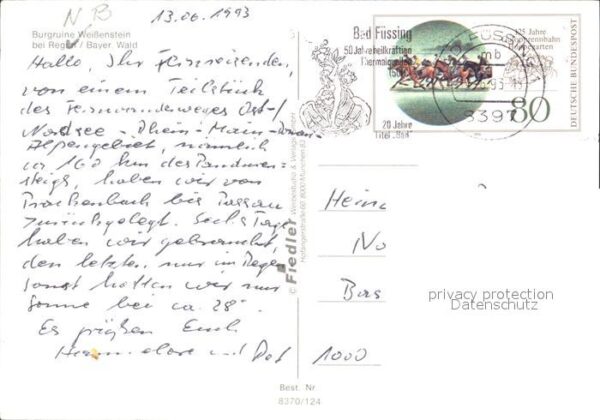 N B
13.06.1993
Burgruine Weißenstein
bei Regen / Bayer. Wald
Hallo Ihr
von einem Teilstück
des Fernwanderweges Ost-/
Nordsee - Rhein-Main-
Alpengebiet, nämlich
ca 160 km des Pandurensteigs, haben wir von
bis Passau
zurückgelegt. Sechs Tage
haben wir gebraucht,
den letzten nur im Regen
sonst hatten wir nur
Sonne bei ca. 28°.
Es grüßen Euch
Hannelore und
© Fiedler
Bad Füssing
50 Jahre heilkräftiges
Thermalgas
20 Jahre
Titel „Bad“
mb
8397
125 Jahre
80
DEUTSCHE BUNDESPOST
Heinc
No
1000
privacy protection
Datenschutz
Best. Nr
8370/124